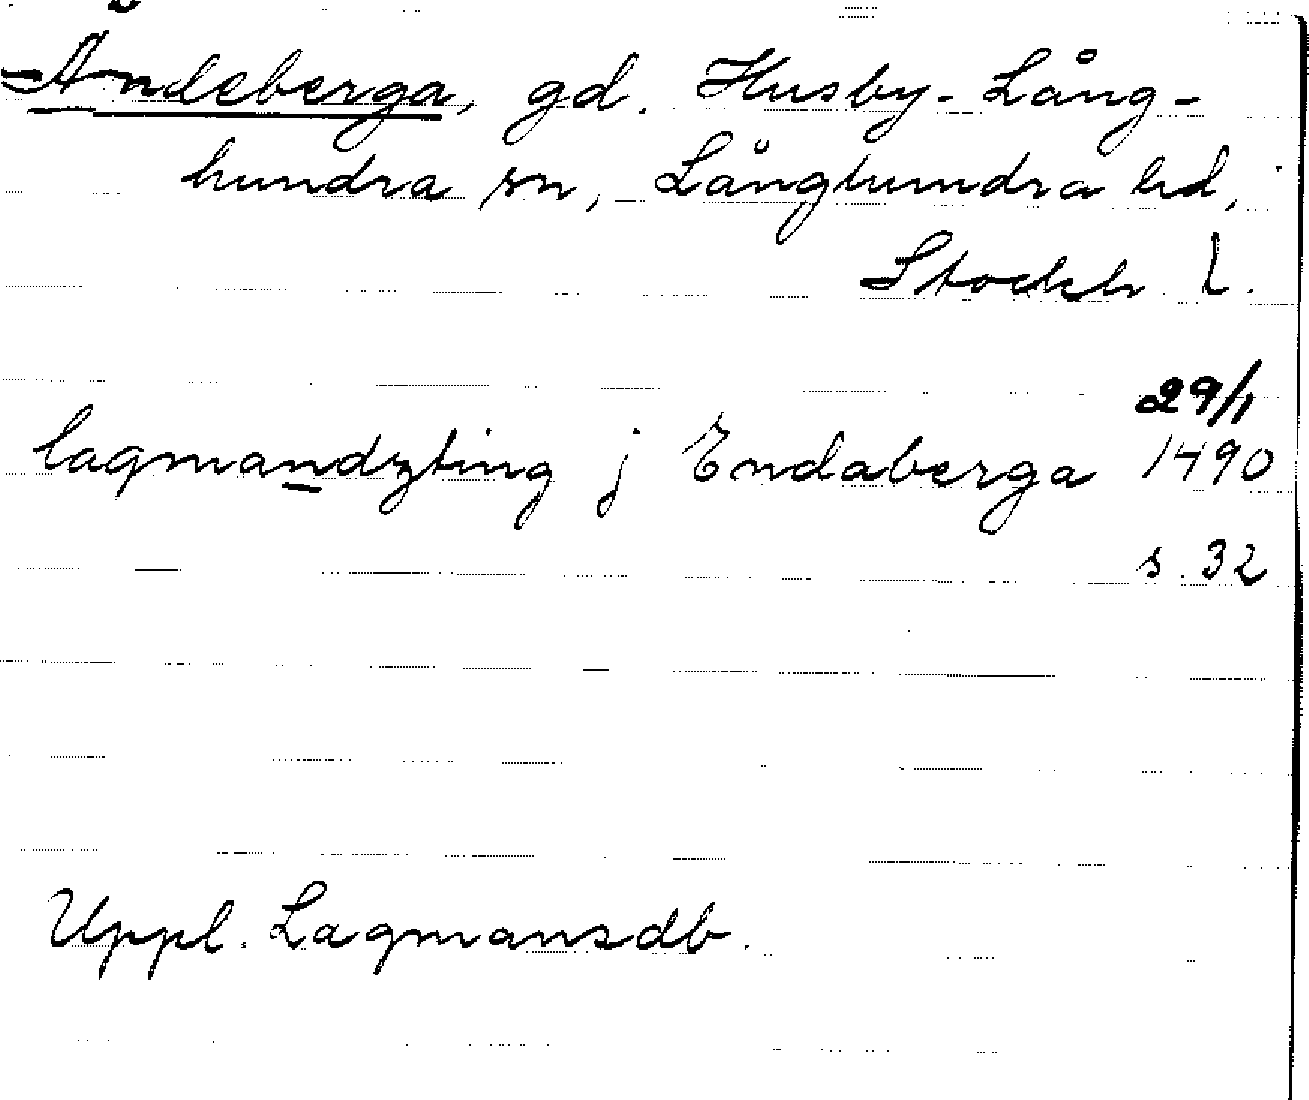 Andeberga, gd. Husby-Lång-
hundra sn, Långhundra hd,
Stockh l.
29/1
lagmandzting j Endaberga 1490
s. 32
Uppl. Lagmansdb.